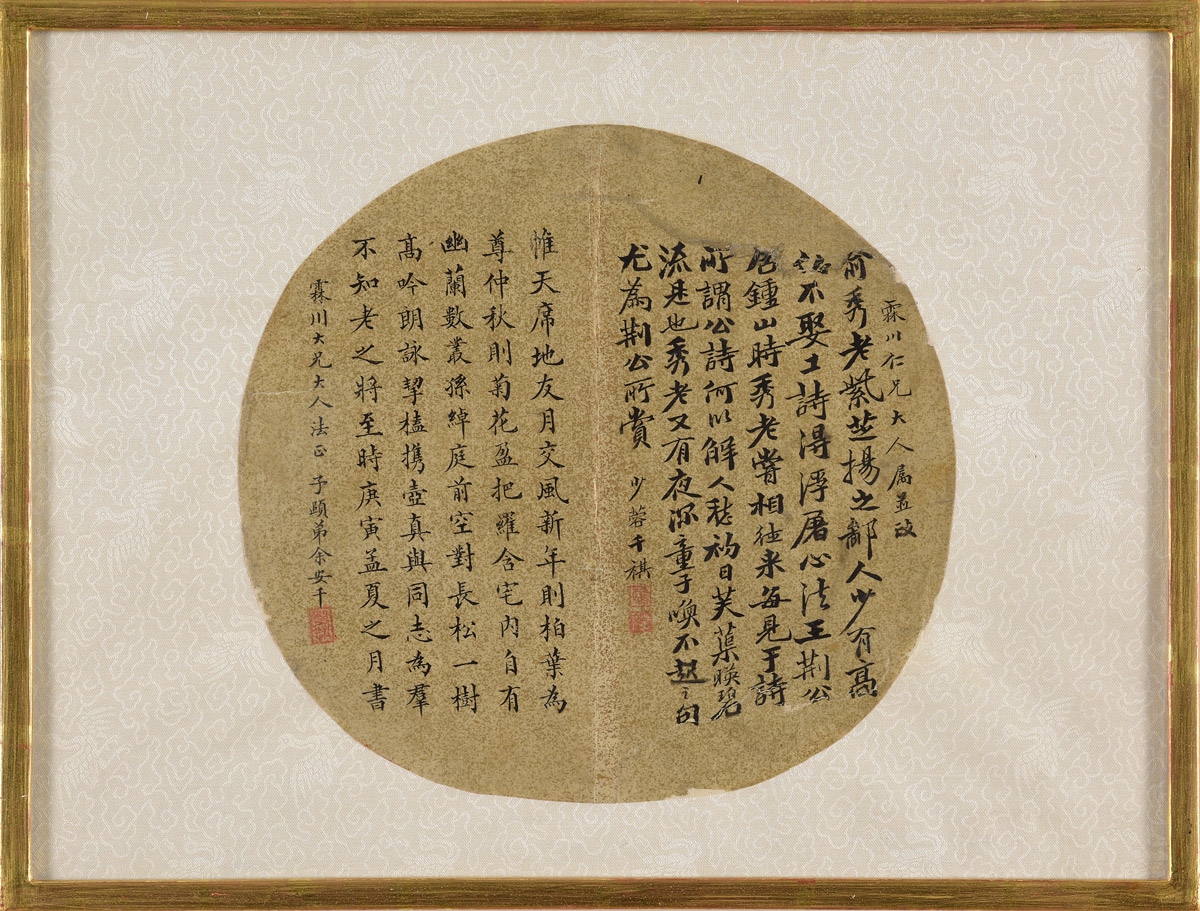 霖川仁兄大人屬並政
俞秀老紫芝揚之鄙人少有高
不娶工詩得浮屠心法王荊公
居鍾山時秀老嘗相往来每見于詩
所謂公詩何以解人愁初日芙蕖暎碧
流是也秀老又有夜深童子喚不起之句
尤為荊公所賞 少蓉千祺
帷天席地友月交風新年則柏葉為
尊仲秋則菊花盈把羅含宅內自有
幽蘭數叢孫綽庭前空對長松一樹
高吟朗詠挈榼攜壺真與同志為羣
不知老之將至時庚寅孟夏之月書
霖川大兄大人法正 子頤弟余安千